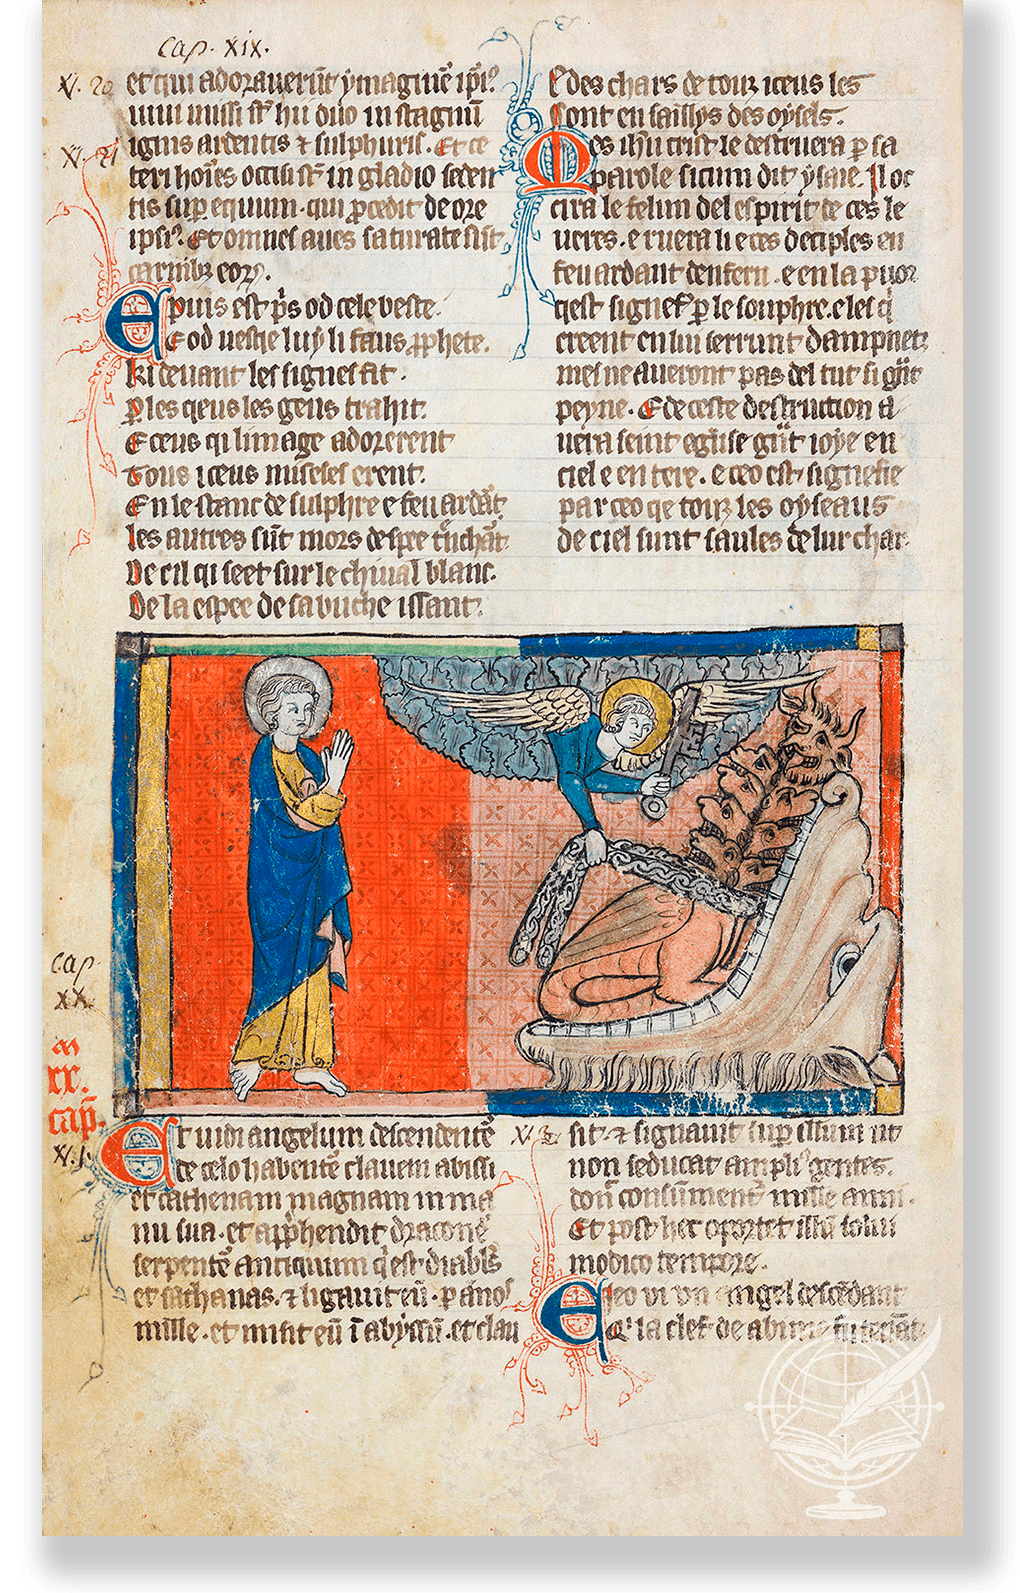 Cap. xix.
V. 20 et qui adoraverūt ymaginē ipiꝰ
vivi missi st̄ hii duo in stagnū
V. 21 ignis ardentis ⁊ sulphuris. Et ce
teri hoīes occisi st̄ in gladio seden
tis super equum. qui ꝓcedit de ore
ipsiꝰ. Et omnes aves saturate st̄
carnibꝫ eoꝝ.
Epuis est pͥs od cele beste.
E od uesqe luy li faus ꝓphete.
Ki devant les signes fist.
ꝑ les qeus les gens trahit.
E ceus qi limage adorerent
Tous iceus miseles erent.
En le stanc de sulphre e feu ardāt.
les autres sūt mors despee trēchāt.
De cil qi seet sur le chival blanc.
De la espee de sa buche issant.
E des chars de touz iceus les
sont ensaillys des oysels.
Mes ihū crist le destruera ꝑ sa
parole sicum dit ysaie. Il oc
cira le felun del espirit de ces le
vres. e ruera li e ces deciples en
feu ardant denfern. e en la puor
qest signef ꝑ le souphre. e les qͥ
creent en lui serrunt dampnez
mes ne averont pas del tut si gͣnt
peyne. E de ceste destruction a
vera seint eglise gͣnt ioye en
ciel e en tere. e ceo est signefie
par ceo qe touz les oyseaus
de ciel sunt saules de lur char
cap.
XX.
xx.
cap̄.
V. 1. Et vidi angelum descendentē
de celo habentē clavem abissi
et cathenam magnam in ma
nu sua. et apphendit draconē
serpentē antiquum qͥ est diabls
et sathanas. ⁊ ligavit eū. ꝑ anos
mille. et misit eū ī abyssū. et clau
V. 3. sit. ⁊ signavit supͬ illum ut
non seducat ampliꝰ gentes.
don̄ consūment̄ mille anni.
Et post hec oportet illū solvi
modico tempore.
E jeo vi un angel descēdant
de la clef de abime